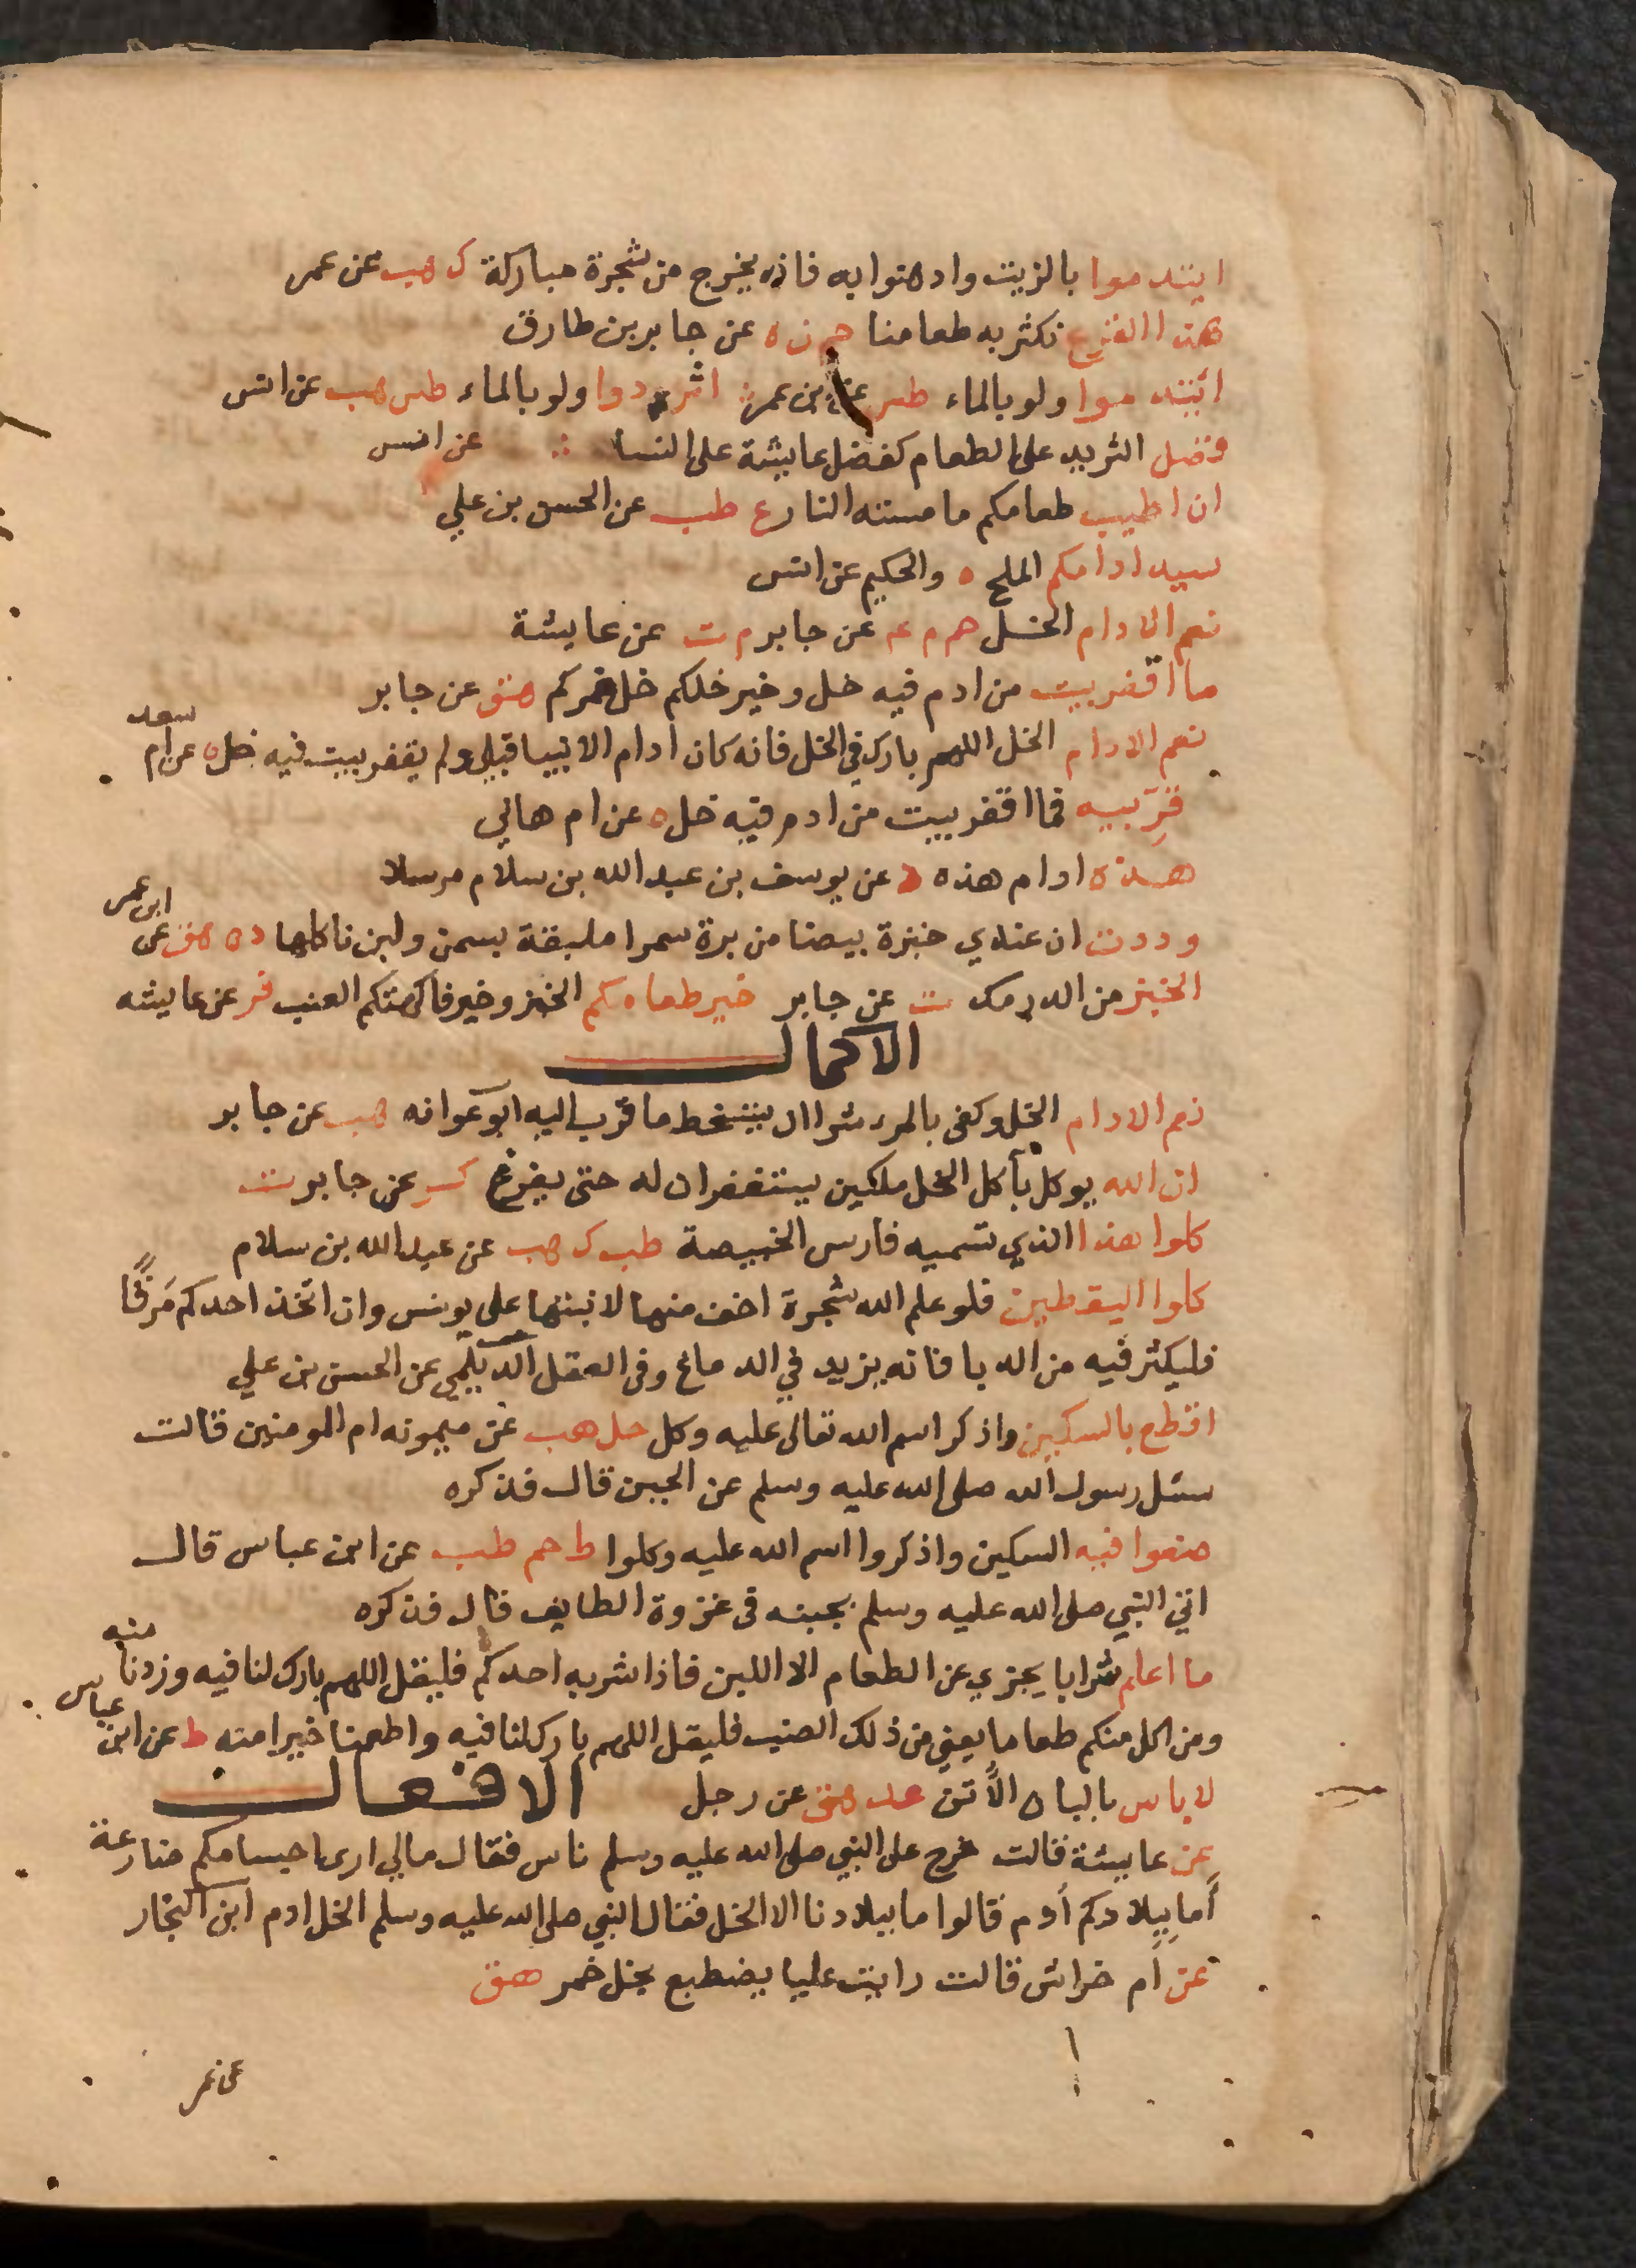 ايتدموا بالزيت وادهنوا به فانه يخرج من شجرة مباركة ك هب عن عمر
هذا القرع نكثر به طعامنا حم ن ه عن جابر بن طارق
ائتدموا ولو بالماء طس عن ابن عمر اثردوا ولو بالماء طس هب عن انس
فضل الثريد على الطعام كفضل عايشة على النسا عن انس
ان اطيب طعامكم ما مسته النار ع طب عن الحسن بن علي
سيد ادامكم الملح ه والحكيم عن انس
نعم الادام الخل حم م عم عن جابر م ت عن عايشة
ما اقفر بيت من ادم فيه خل وخير خلكم خل خمركم هق عن جابر
نعم الادام الخل اللهم بارك في الخل فانه كان ادام الانبيا قبلي ولم يقفر بيت فيه خل ه عن ام سعد
قربيه فما اقفر بيت من ادم فيه خل ه عن ام هاني
هذه ادام هذه د عن يوسف بن عبد الله بن سلام مرسلا
وددت ان عندي خبزة بيضا من برة سمرا ملبقة بسمن ولبن ناكلها د ه هق عن ابن عمر
الخبز من الدرمك ت عن جابر خير طعامكم الخبز وخير فاكهتكم العنب فر عن عايشه
الاكمال
نعم الادام الخل وكفى بالمرء شرا ان يتسخط ما قرب اليه ابو عوانه هب عن جابر
ان الله يوكل بآكل الخل ملكين يستغفران له حتى يفرغ كر عن جابر ت
كلوا هذا الذي تسميه فارس الخبيصة طب ك هب عن عبد الله بن سلام
كلوا اليقطين فلو علم الله شجرة اخف منها لانبتها على يونس وان اتخذ احدكم مَرقًا
فليكثر فيه من الدبا فانه يزيد في الدماغ وفى العقل الديلمي عن الحسن بن علي
اقطع بالسكين واذكر اسم الله تعالى عليه وكل حل هب عن ميمونه ام المومنين قالت
سئل رسول الله صلى الله عليه وسلم عن الجبن قال فذكره
ضعوا فيه السكين واذكروا اسم الله عليه وكلوا ط حم طب عن ابن عباس قال
اتي النبي صلى الله عليه وسلم بجبنه في غزوة الطايف قال فذكره
ما اعلم شرابا يجزي عن الطعام الا اللبن فاذا شربه احدكم فليقل اللهم بارك لنا فيه وزدنا منه
ومن اكل منكم طعاما يعني من ذلك الضب فليقل اللهم بارك لنا فيه واطعمنا خيرا منه ط عن ابن عباس
لا باس بالبان الأتن عد هق عن رجل الافعال
عن عايشة قالت خرج على النبي صلى الله عليه وسلم ناس فقال مالي ارى اجسامكم ضارعة
أما ببلادكم أدم قالوا ما ببلادنا الا الخل فقال النبي صلى الله عليه وسلم الخل ادم ابن النجار
عن ام خراش قالت رايت عليا يضطبع بخل خمر هق
عن عمر